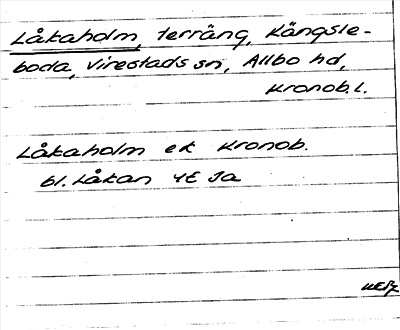 Låkaholm, terräng, Kängsle-
boda, Virestads sn, Allbo hd,
Kronob.l.
Låkaholm ek Kronob.
bl. Låkan 4E Ja